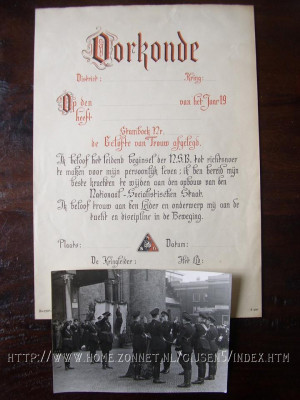 Oorkonde
District: Kring:
Op den van het Jaar 19
heeft
Stamboek Nr.
de Belofte van Trouw afgelegd.
Ik beloof het leidend beginsel der N.S.B. tot richtsnoer
te maken voor mijn persoonlijk leven; ik ben bereid mijn
beste krachten te wijden aan den opbouw van den
Nationaal-Socialistischen Staat.
Ik beloof trouw aan den Leider en onderwerp mij aan de
tucht en discipline in de Beweging.
Plaats: Datum:
De Kringleider: Het Lid:
HTTP://WWW.HOME.ZONNET.NL/CIJSEN5/INDEX.HTM